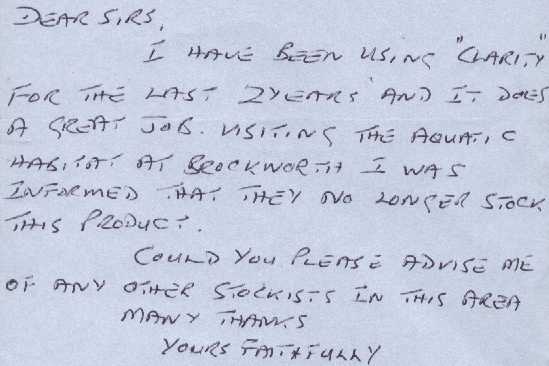 DEAR SIRS,
I HAVE BEEN USING "CLARITY"
FOR THE LAST 2YEARS AND IT DOES
A GREAT JOB. VISITING THE AQUATIC
HABITAT AT BROCKWORTH I WAS
INFORMED THAT THEY NO LONGER STOCK
THIS PRODUCT.
COULD YOU PLEASE ADVISE ME
OF ANY OTHER STOCKISTS IN THIS AREA
MANY THANKS
YOURS FAITHFULLY